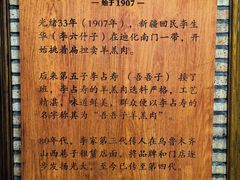 始于1907
光绪33年（1907年），新疆回民李生
华（李六什子）在迪化南门一带，开
始挑着扁担卖羊羔肉。
后来第五子李占寿（吾吾子）接了
班，李占寿的羊羔肉选料严格，工艺
精湛，味道鲜美，群众便以李占寿的
名字称其为“吾吾子羊羔肉”
80年代，李家第三代传人在乌鲁木齐
山西巷子租赁店面，将品牌和门店逐
步发扬光大，至今已传至第四代。